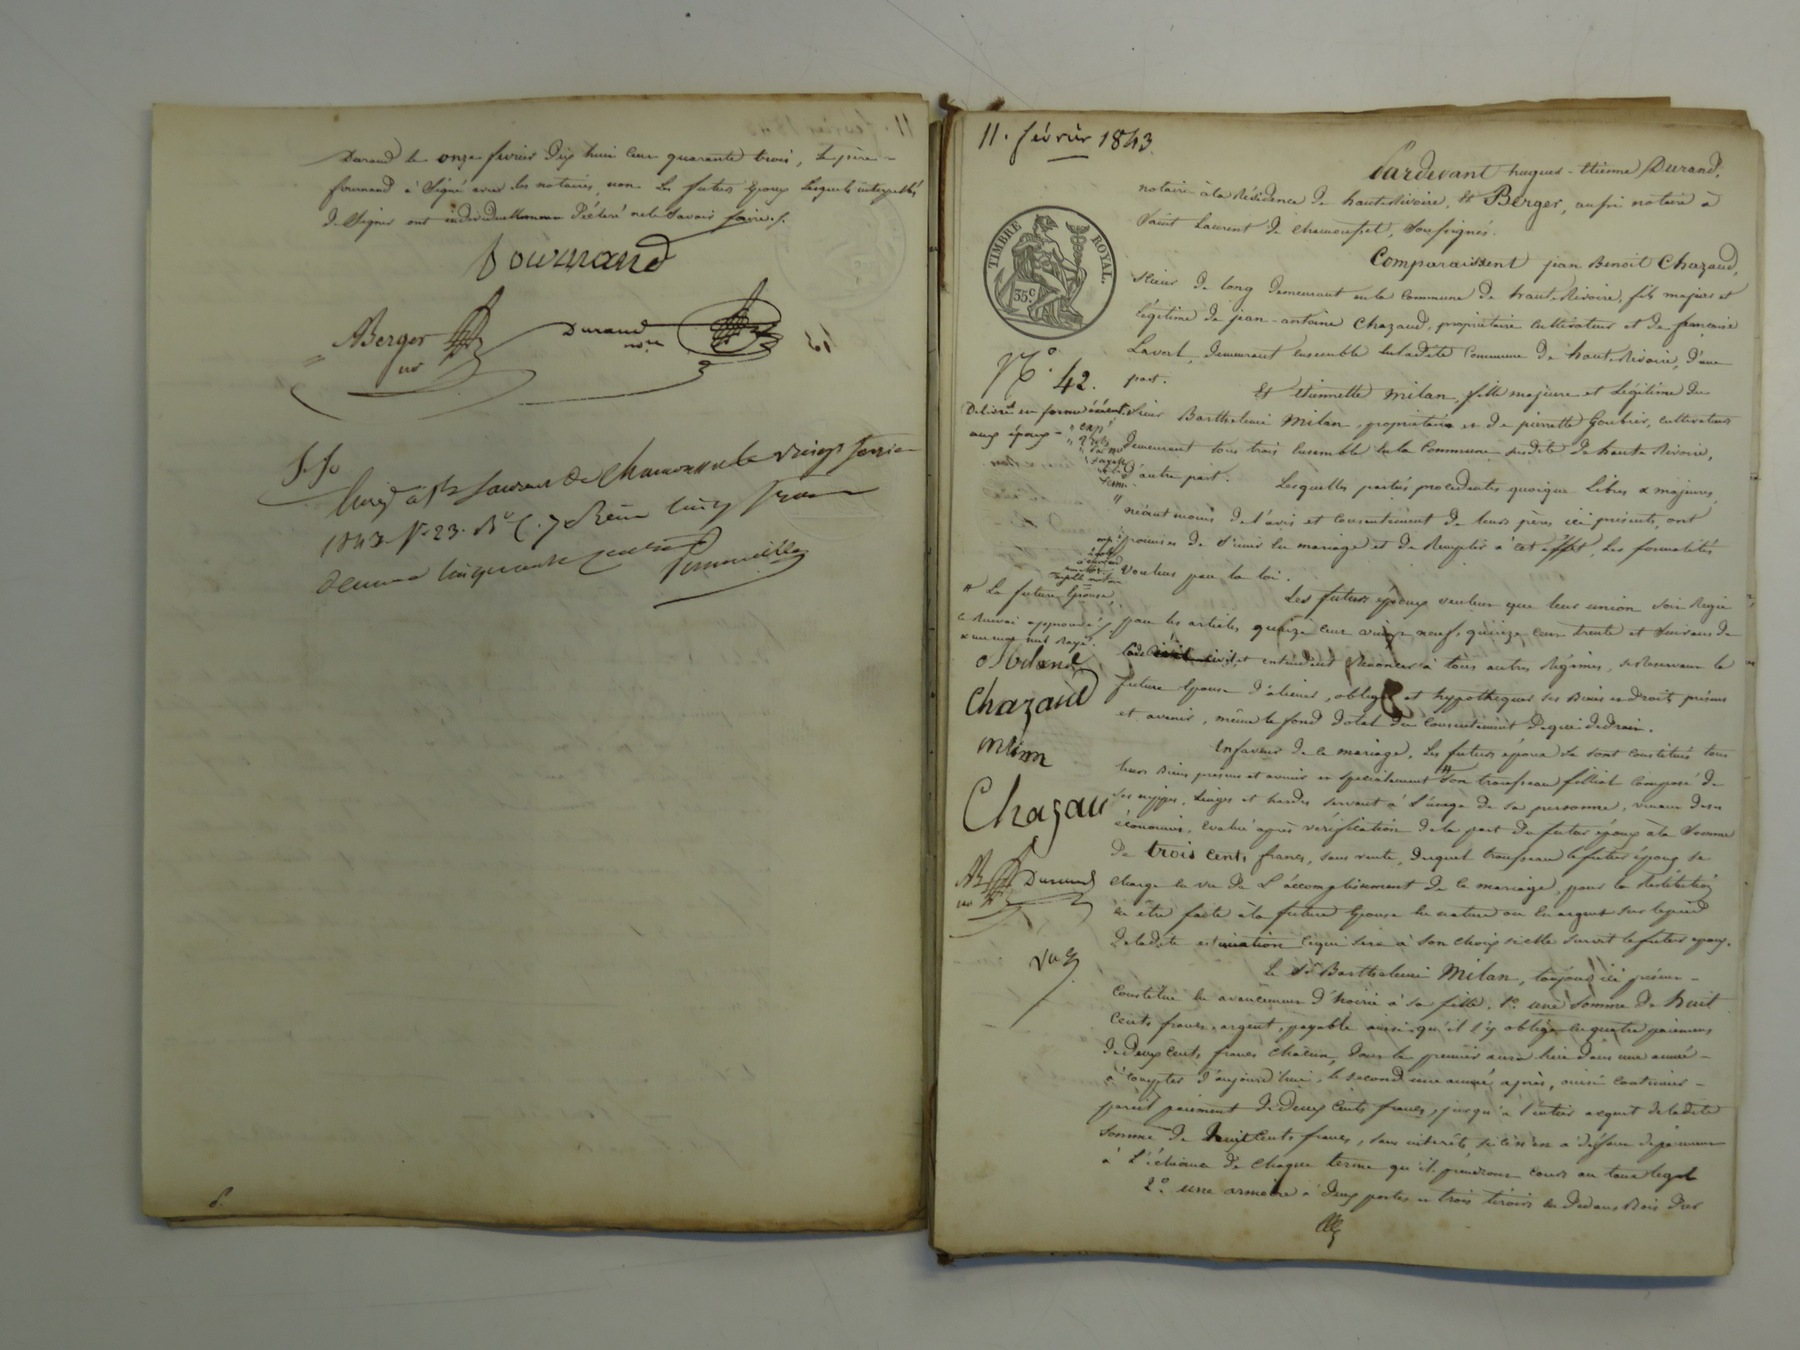 Durand le onze fevrier dix huit cent quarante trois, le père
fournand a signé avec les notaires, non les futurs époux lesquels interpellés
de signer ont individuellement déclaré ne le savoir faire.
fournand
ABerger
nre
Durand
nre
Enregé à St Laurent de Chamousset le vingt février
1843 fo 23 Ro C. 7 Reçu cinq francs
décime cinquante centimes
11. février 1843
TIMBRE ROYAL
35c
No. 42.
Délivré en forme exécut.
aux époux
# la future épouse,
le renvoi approuvé
& un mot nul rayé.
Miland
Chazaud
milan
Chazau
AB
nre
Durand
Vu
Pardevant hugues-Etienne Durand,
notaire à la Résidence de haute Rivoire, et Berger, aussi notaire à
Saint Laurent de Chamousset, soussignés.
Comparaissent jean Benoit Chazaud,
scieur de long demeurant en la Commune de haute Rivoire, fils majeur et
légitime de jean-antoine Chazaud, propriétaire cultivateur et de françoise
Laval, demeurant ensemble en ladite Commune de haute Rivoire, d'une
part.
Et etiennette milan, fille majeure et légitime du
sieur Barthelemi Milan, propriétaire et de pierrette Goubier, cultivateurs
demeurant tous trois ensemble en la Commune susdite de haute Rivoire,
d'autre part.
Lesquelles parties procédantes quoique libres & majeures,
néantmoins de l'avis et consentement de leurs pères ici présents, ont
promises de s'unir en mariage et de remplir à cet effet, les formalités
voulues par la loi.
Les futurs époux veulent que leur union soit Regie
par les articles quinze cent vingt neuf, quinze cent trente et suivans du
Code civil, et entendent renoncer à tous autres Régimes, se reservant la
future épouse d'aliéner, obliger et hypothequer ses Biens et droits présens
et avenir, même le fond dotal du consentement de qui de droit.
En faveur de ce mariage, les futurs époux se sont constitués tous
leurs Biens présens et avenir et specialement # son trousseau fillial composé de
ses nippes, linges et hardes servant à l'usage de sa personne, venant de ses
économies, évalué après vérification de la part du futur époux à la somme
de trois cents francs, sans vente, duquel trousseau le futur époux se
charge en vue de l'accomplissement de ce mariage, pour la restitution
en être faite à la future épouse en nature ou en argent sur le pied
de ladite estimation ce qui sera à son choix si elle survit le futur époux.
Le sr Barthelemi Milan, toujours ici présent
constitue en avancement d'hoirie à sa fille, 1o une somme de huit
cents francs, argent, payable ainsi qu'il s'y oblige en quatre paiemens
de deux cents francs chacun, dont le premier aura lieu dans une année
à compter d'aujourd'hui, le second une année après, ainsi continuer
pareil paiement de deux cents francs, jusqu'à l'entier acquit de ladite
somme de huit cents francs, sans intérêts, si ce n'en à défaut de paiement
à l'échéance de chaque terme qu'ils prendront cours au taux legal
2o une armoire à deux portes et trois tiroirs en dedans Bois dur